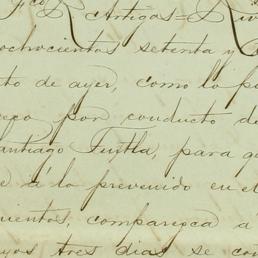 Artigas = Riv
ochocientos setenta y
to de ayer, como lo pi
por conducto de
antiago Tuxtla, para qu
e á lo prevenido en el
uientos, comparezca á
tres dias se con